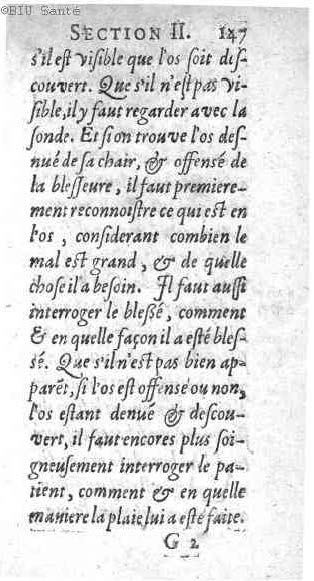 ©BIU Santé
SECTION II. 147
s'il est visible que l'os soit des-
couvert. Que s'il n'est pas vi-
sible, il y faut regarder avec la
sonde. Et si on trouve l'os des-
nué de sa chair, & offensé de
la blesseure, il faut premiere-
ment reconnoistre ce qui est en
l'os, considerant combien le
mal est grand, & de quelle
chose il a besoin. Il faut aussi
interroger le blessé, comment
& en quelle façon il a esté bles-
sé. Que s'il n'est pas bien ap-
parẽt, si l'os est offensé ou non,
l'os estant denué & descou-
vert, il faut encores plus soi-
gneusement interroger le pa-
tient, comment & en quelle
maniere la plaie lui a esté faite.
G 2